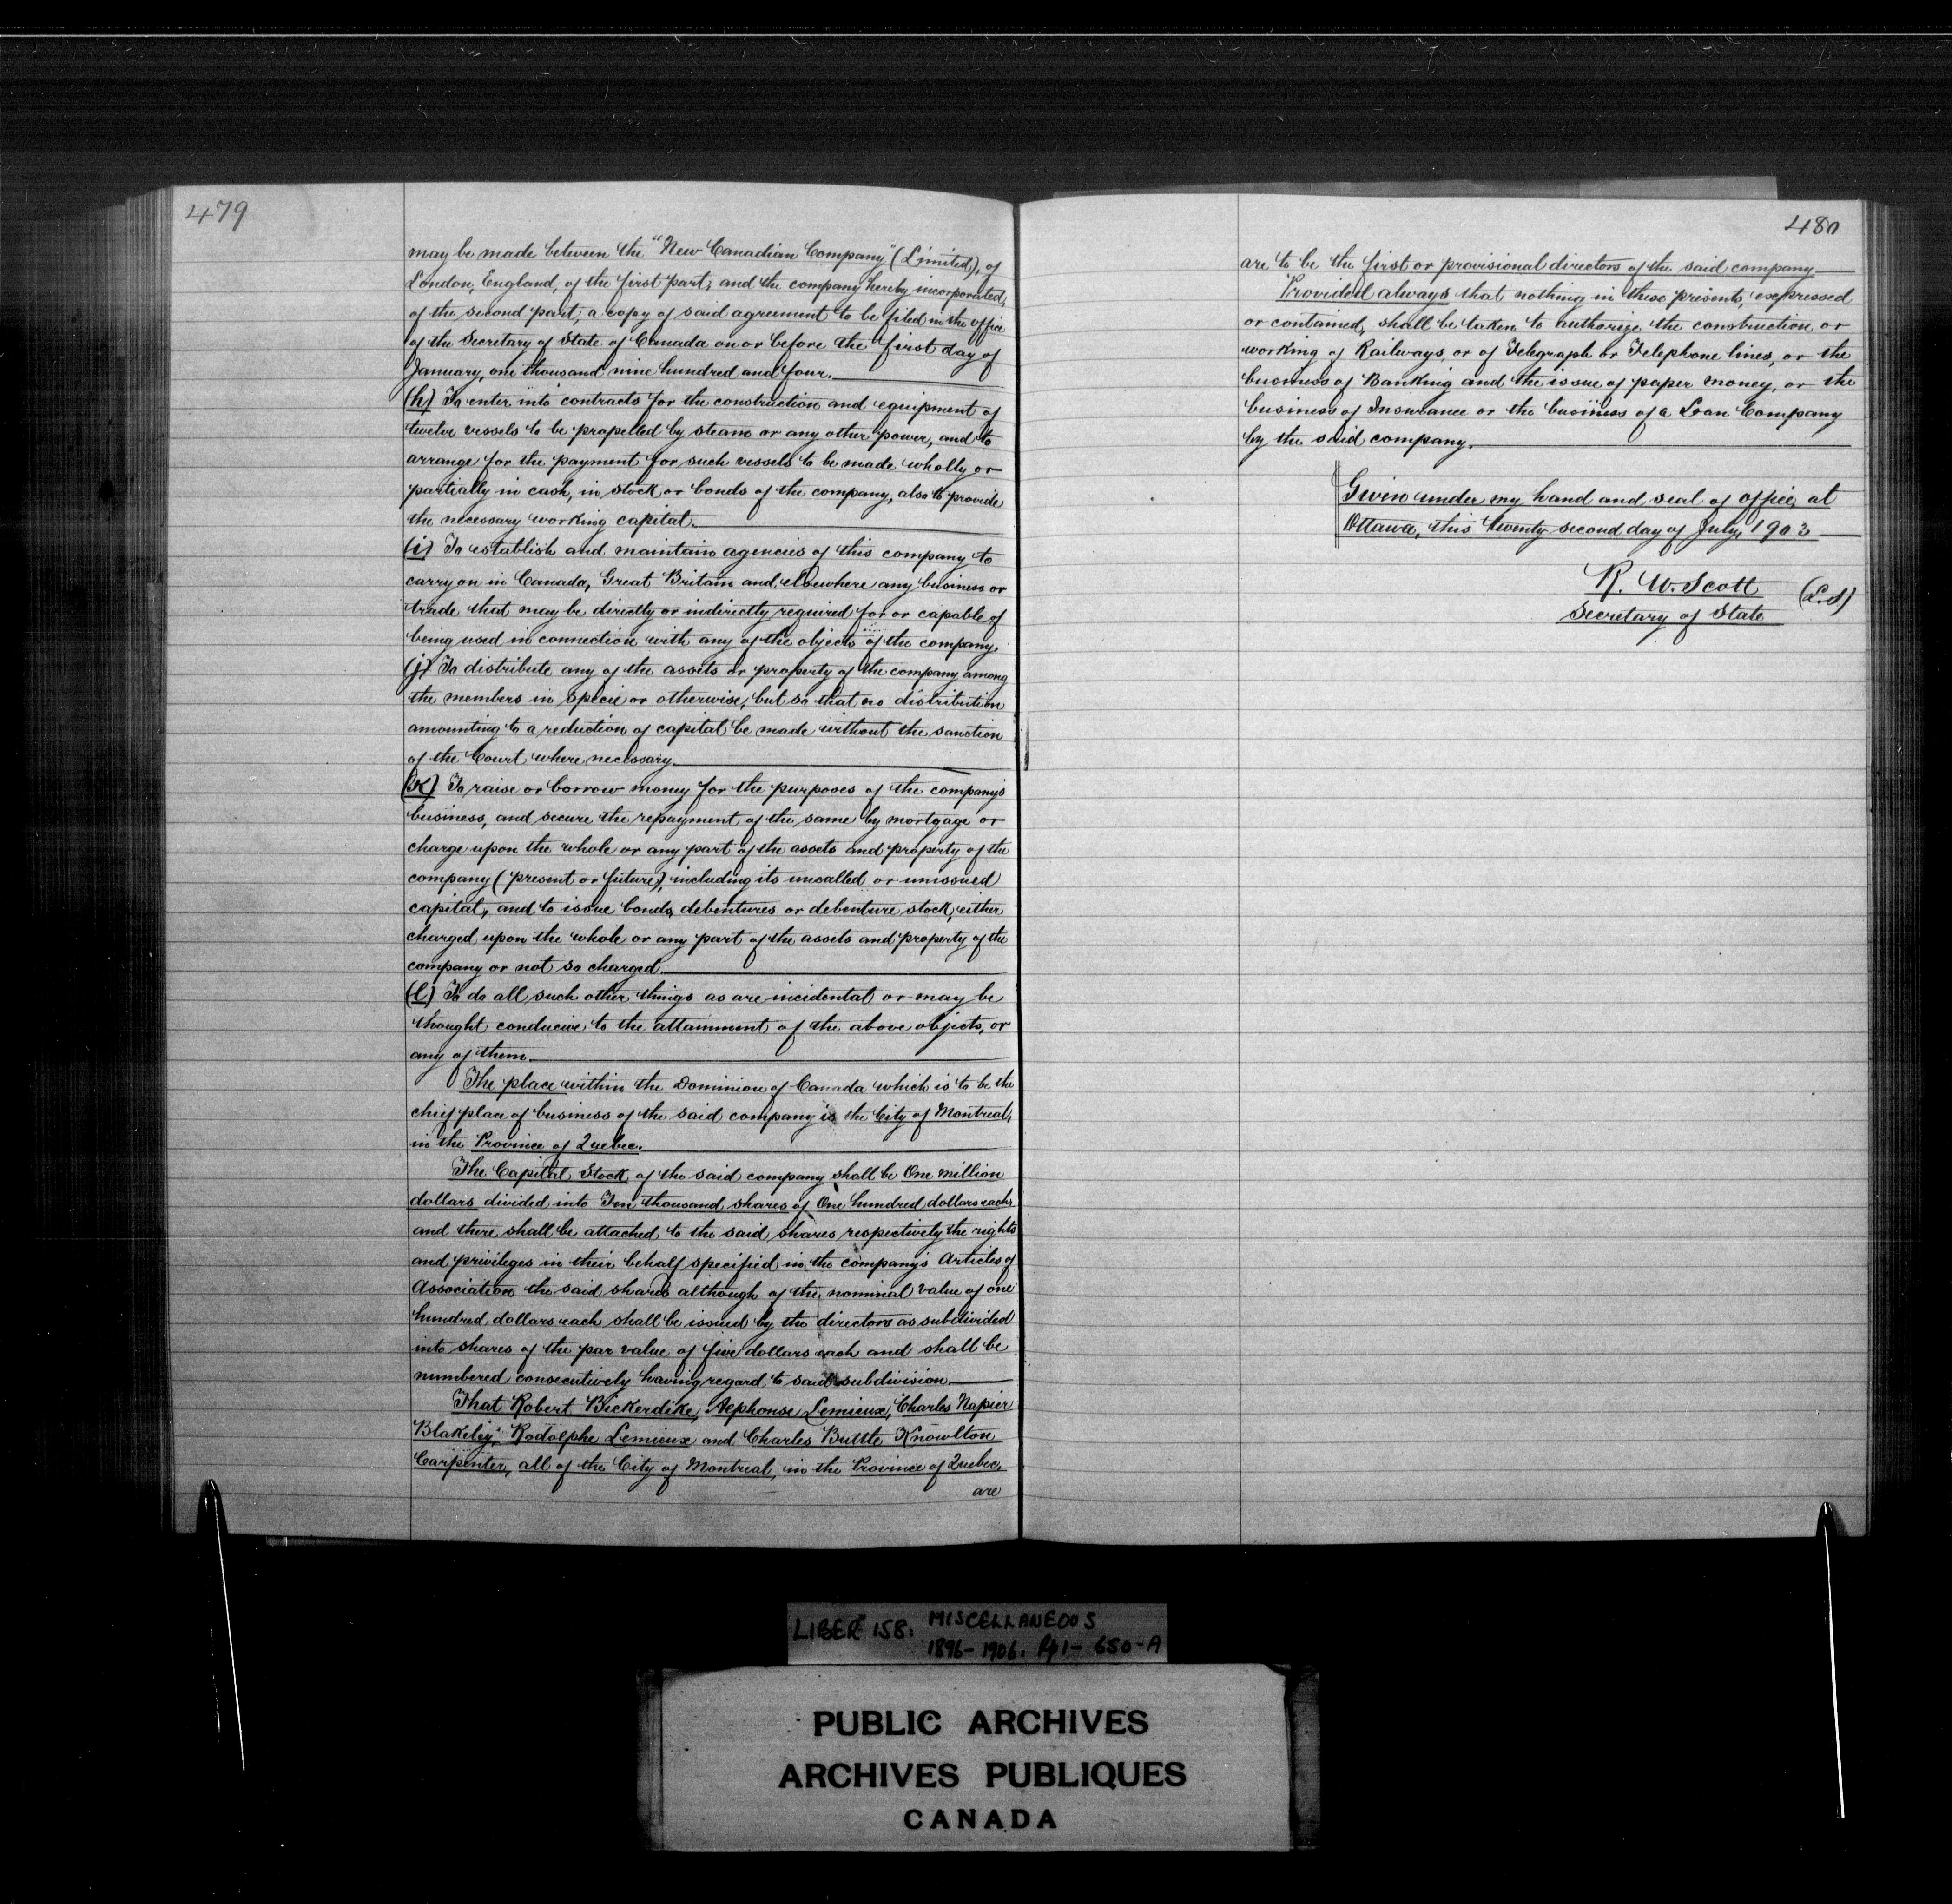 479
may be made between the "New Canadian Company" (Limited), of
London, England, of the first part; and the company hereby incorporated,
of the second part; a copy of said agreement to be filed in the office
of the Secretary of State of Canada on or before the first day of
January, one thousand nine hundred and four.
(h) To enter into contracts for the construction and equipment of
twelve vessels to be propelled by steam or any other power, and to
arrange for the payment for such vessels to be made wholly or
partially in cash, in stock or bonds of the company, also to provide
the necessary working capital.
(i) To establish and maintain agencies of this company to
carry on in Canada, Great Britain and elsewhere any business or
trade that may be directly or indirectly required for or capable of
being used in connection with any of the objects of the company.
(j) To distribute any of the assets or property of the company among
the members in specie or otherwise, but so that no distribution
amounting to a reduction of capital be made without the sanction
of the Court where necessary.
(k) To raise or borrow money for the purposes of the company's
business, and secure the repayment of the same by mortgage or
charge upon the whole or any part of the assets and property of the
company (present or future), including its uncalled or unissued
capital, and to issue bonds, debentures or debenture stock, either
charged upon the whole or any part of the assets and property of the
company or not so charged.
(l) To do all such other things as are incidental or may be
thought conducive to the attainment of the above objects, or
any of them.
The place within the Dominion of Canada which is to be the
chief place of business of the said company is the City of Montreal,
in the Province of Quebec.
The Capital Stock of the said company shall be One million
dollars divided into Ten thousand shares of One hundred dollars each,
and there shall be attached to the said shares respectively the rights
and privileges in their behalf specified in the company's Articles of
Association the said shares although of the nominal value of one
hundred dollars each shall be issued by the directors as subdivided
into shares of the par value of five dollars each and shall be
numbered consecutively having regard to said subdivision
That Robert Bickerdike, Alphonse Lemieux, Charles Napier
Blakeley, Rodolphe Lemieux and Charles Buttle Knowlton
Carpenter, all of the City of Montreal, in the Province of Quebec,
are
480
are to be the first or provisional directors of the said company
Provided always that nothing in these presents, expressed
or contained, shall be taken to authorize the construction or
working of Railways, or of Telegraph or Telephone lines, or the
business of Banking and the issue of paper money, or the
business of Insurance or the business of a Loan Company
by the said company.
Given under my hand and seal of office, at
Ottawa, this twenty second day of July, 1903
R. W. Scott (L.S)
Secretary of State
LIBER 158: MISCELLANEOUS
1896-1906. Pp 1- 650-A
PUBLIC ARCHIVES
ARCHIVES PUBLIQUES
CANADA